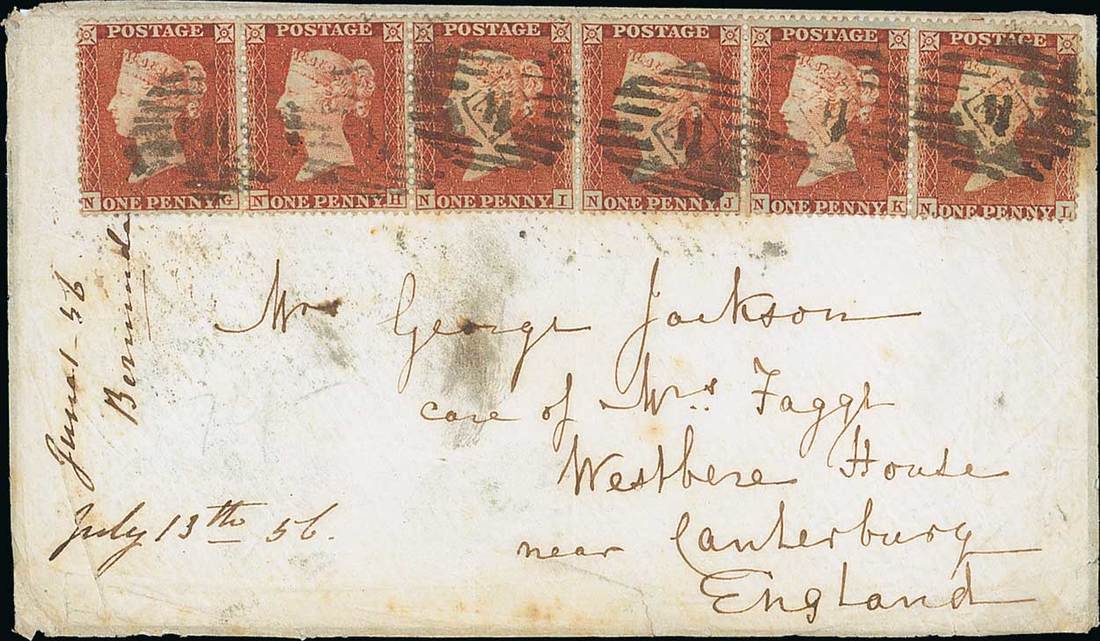 POSTAGE POSTAGE POSTAGE POSTAGE POSTAGE POSTAGE
N ONE PENNY G N ONE PENNY H N ONE PENNY I N ONE PENNY J N ONE PENNY K N ONE PENNY L
Mr George Jackson
care of Mrs. Faggt
Westbere House
near Canterbury
England
June 1 - 56
Bermuda
July 13th 56.